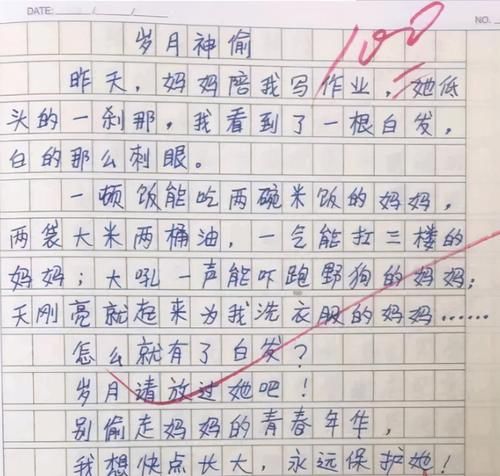 DATE:
NO.
岁月神偷
100
昨天，妈妈陪我写作业，她低
头的一刹那，我看到了一根白发，
白的那么刺眼。
一顿饭能吃两碗米饭的妈妈，
两袋大米两桶油，一气能扛三楼的
妈妈；大吼一声能吓跑野狗的妈妈；
天刚亮就起来为我洗衣服的妈妈……
怎么就有了白发？
岁月请放过她吧！
别偷走妈妈的青春年华，
我想快点长大，永远保护她！